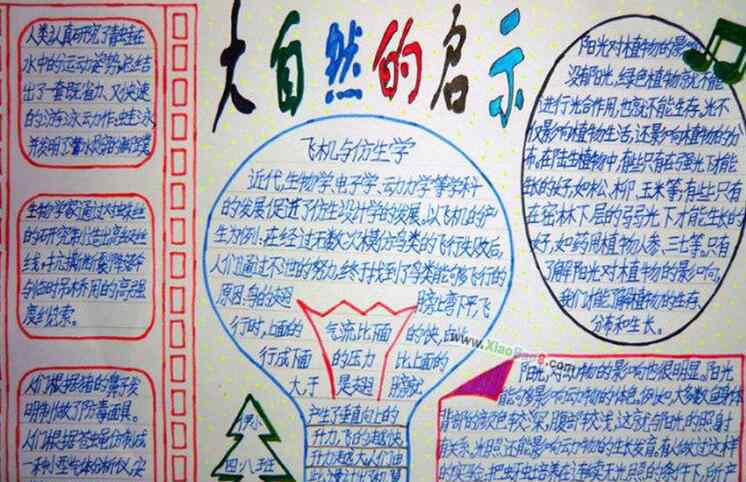 大自然的启示
人类认真研究了青蛙在
水中的运动姿势,总结
出了一套既省力、又快速
的游泳动作:蛙泳
并发明了潜水
生物学家通过对蛛丝
的研究制造出高级丝
线,抗撕断降落伞
与临时吊桥用的高强
度绳索。
人们根据猪的鼻子发
明制做了防毒面具。
人们根据苍蝇仿制成
一种小型气体分析仪,安
飞机与仿生学
近代生物学、电子学、动力学等学科
的发展促进了仿生设计学的发展。以飞机的产
生为例:在经过无数次模仿鸟类的飞行失败后,
人们通过不泄的努力,终于找到了鸟类能够飞行的
原因:鸟的翅膀上弯下平,飞
行时,上面的气流比下面的快,由此
行成下面的压力比上面的
大于是翅膀就
产生了垂直向上的
升力,飞的越快,
升力便越大人们由
小学
四八班
阳光对植物的影响
没有阳光,绿色植物就不能
进行光合作用,也就不能生存。光不
仅影响植物生活,还影响植物的分
布。在陆生植物中,有些只有在强光下才能
生长的好,如松、柳、玉米等;有些只有
在密林下层的弱光下才能生长的
好,如药用植物人参、三七等,只有
了解阳光对木植物的影响,
我们才能了解植物的生存、
分布和生长。
www.XiaoBang.com
阳光对动物的影响也很明显。阳光
能够影响动物的体色,例如大多数鱼身体
背部的颜色较深,腹部较浅,这就与阳光的照射
有关系,光照还能影响动物的生长发育。有人做过这样
的实验,把蚜虫培养在连续无光照的条件下,所产